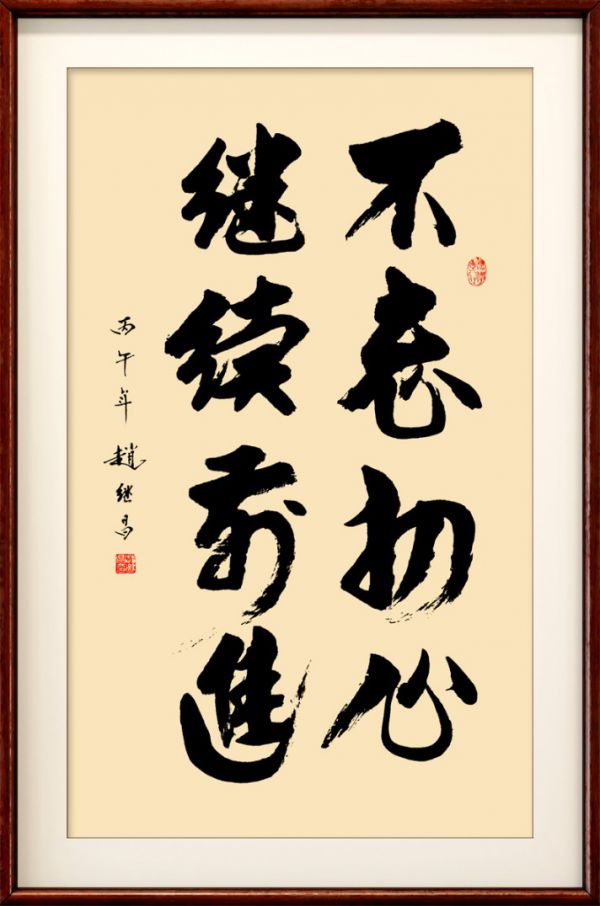 不忘初心
继續前進
丙午年 趙继昌